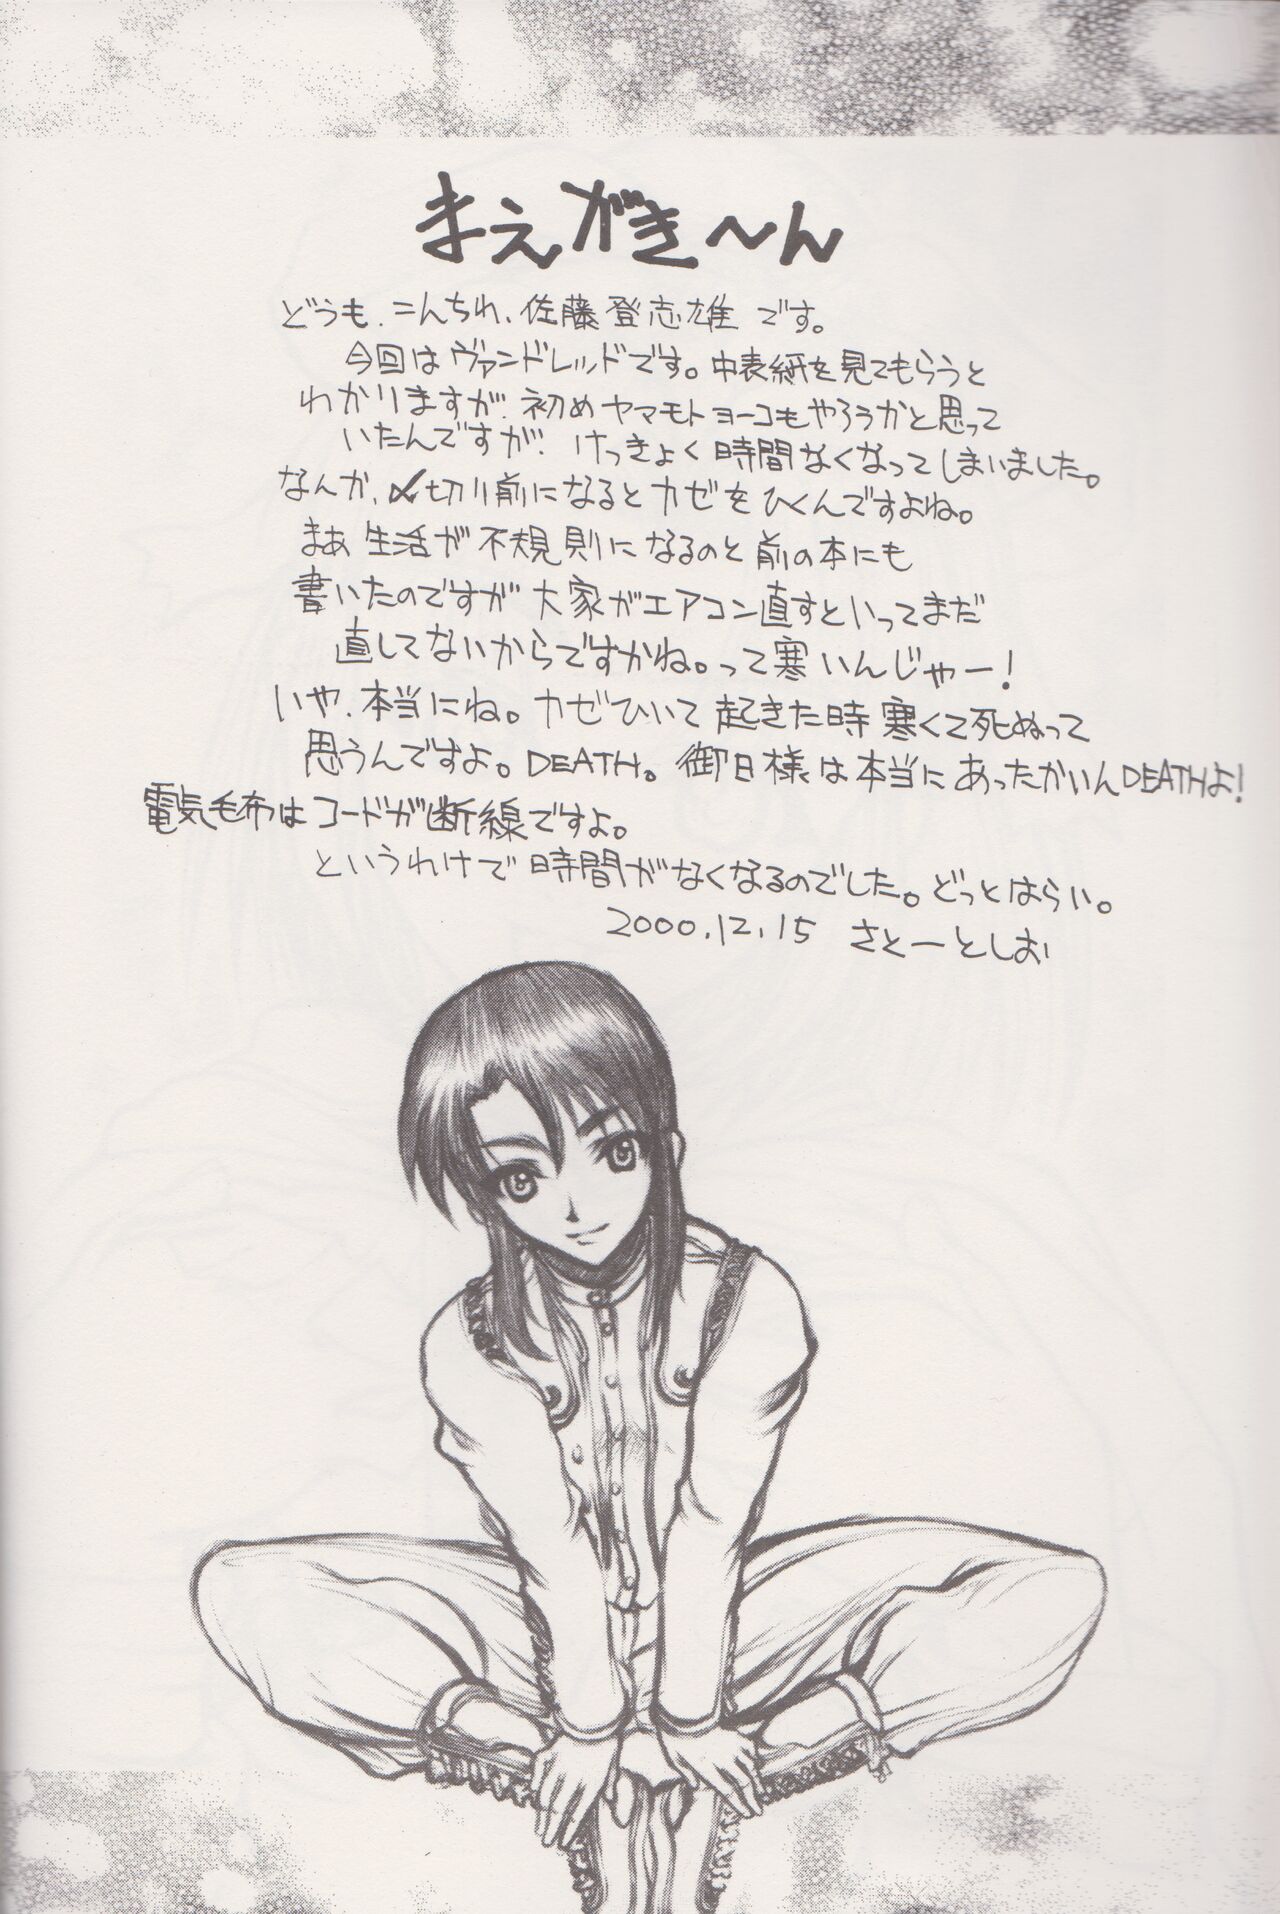 まえがき〜ん
どうも、こんちわ、佐藤登志雄です。
今回はヴァンドレッドです。中表紙を見てもらうと
わかりますが、初めヤマモトヨーコもやろうかと思って
いたんですが、けっきょく時間なくなってしまいました。
なんか、〆切り前になるとカゼをひくんですよね。
まあ生活が不規則になるのと前の本にも
書いたのですが大家がエアコン直すといってまだ
直してないからですかね。って寒いんじゃー!
いや、本当にね。カゼひいて起きた時寒くて死ぬって
思うんですよ。DEATH。御日様は本当にあったかいんDEATHよ!
電気毛布はコードが断線ですよ。
というわけで時間がなくなるのでした。どっとはらい。
2000.12.15 さとーとしお